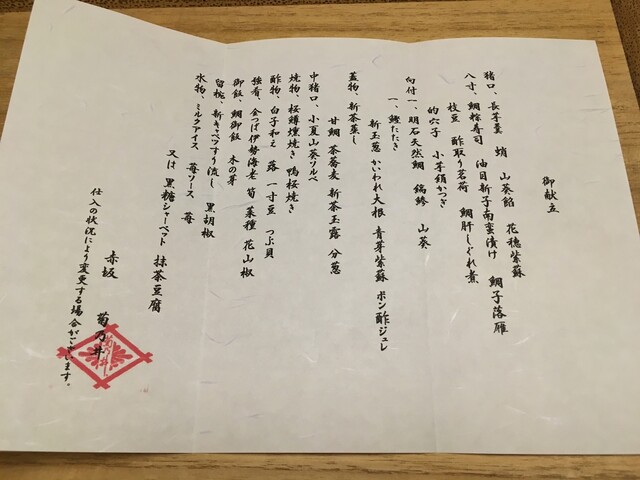 御献立
猪口、長芋羹 蛸 山葵餡 花穂紫蘇
八寸、鯛粽寿司 油目新子南蛮漬け 鯛子落雁
枝豆 酢取り茗荷 鯛肝しぐれ煮
的穴子 小芋絹かつぎ
向付一、明石天然鯛 縞鯵 山葵
一、鰹たたき
新玉葱 かいわれ大根 青芽紫蘇 ポン酢ジュレ
蓋物、新茶蒸し
甘鯛 茶蕎麦 新茶玉露 分葱
中猪口、小夏山葵ソルベ
焼物、桜鱒燻焼き 鴨桜焼き
酢物、白子和え 蕗 一寸豆 つぶ貝
強肴、金つば伊勢海老 筍 菜種 花山椒
御飯、鯛御飯 木の芽
留椀、新キャベツすり流し 黒胡椒
水物、ミルクアイス 苺ソース 苺
又は 黒糖シャーベット 抹茶豆腐
赤坂 菊乃井
仕入の状況により変更する場合がございます。